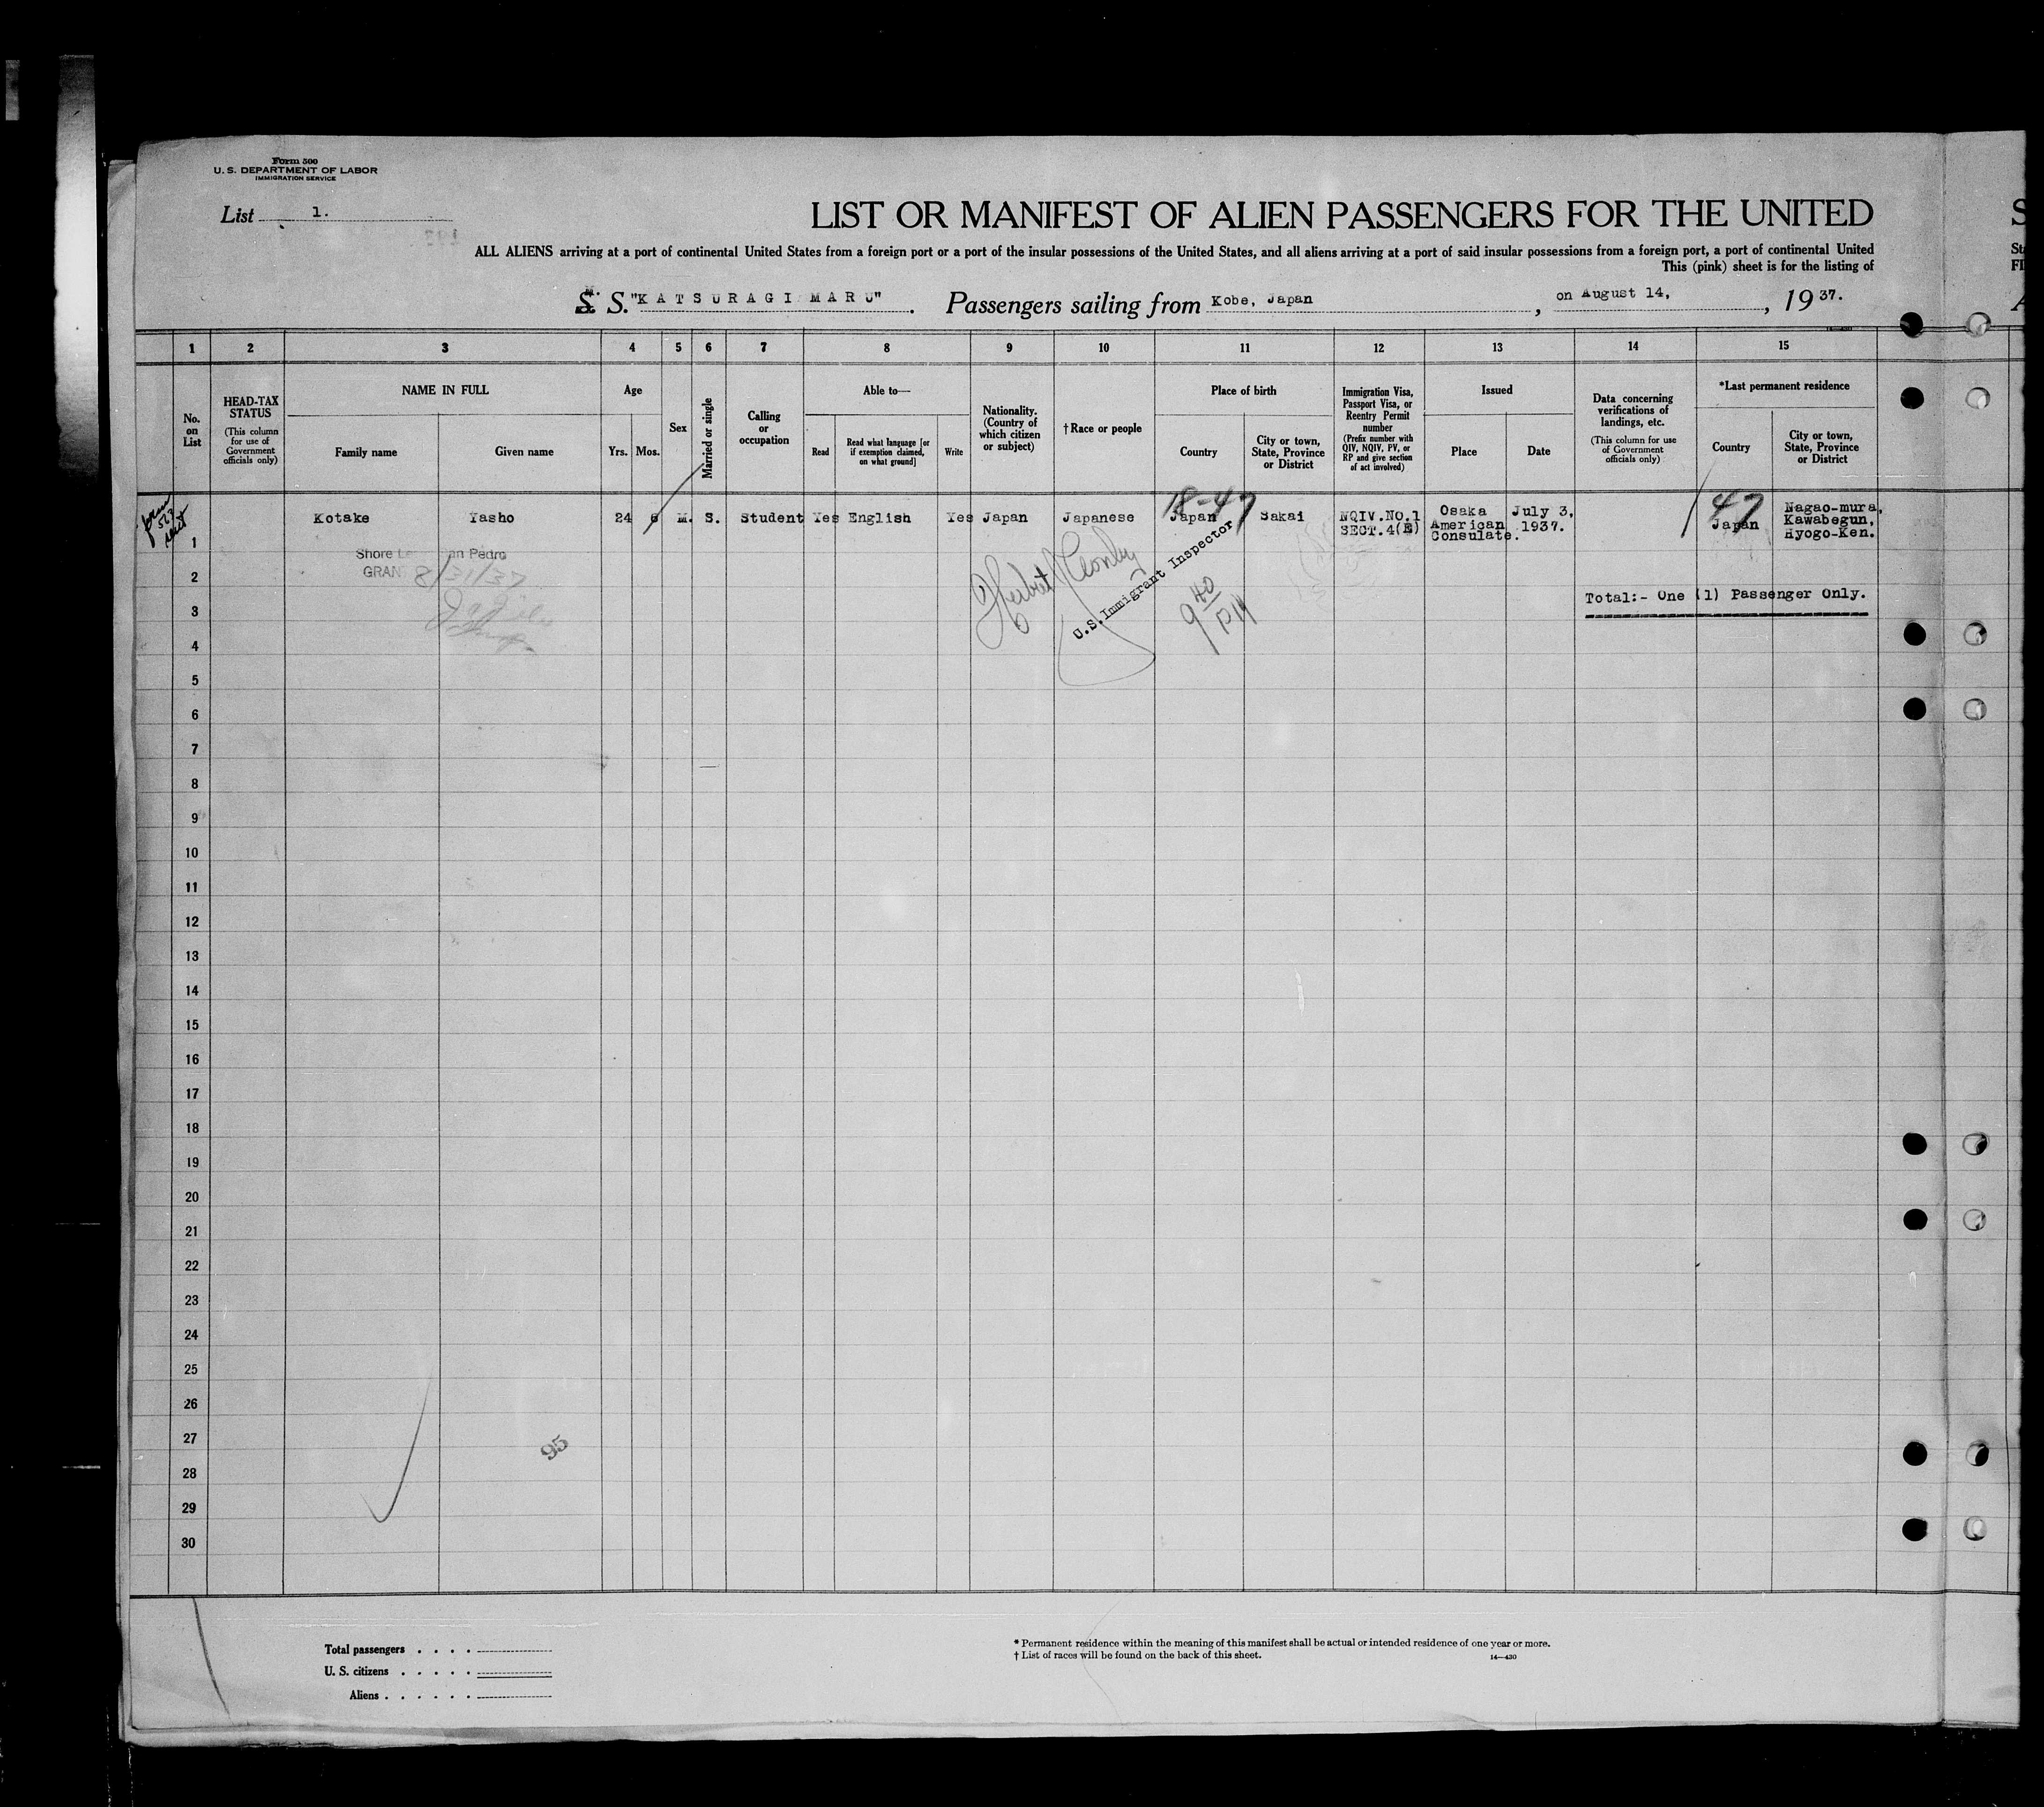 Form 500
U. S. DEPARTMENT OF LABOR
IMMIGRATION SERVICE
List 1.
LIST OR MANIFEST OF ALIEN PASSENGERS FOR THE UNITED
ALL ALIENS arriving at a port of continental United States from a foreign port or a port of the insular possessions of the United States, and all aliens arriving at a port of said insular possessions from a foreign port, a port of continental United
This (pink) sheet is for the listing of
M. S. "KATSURAGI MARU". Passengers sailing from Kobe, Japan, on August 14, , 1937.
1 2 3 4 5 6 7 8 9 10 11 12 13 14 15
No. on List
HEAD-TAX STATUS (This column for use of Government officials only)
NAME IN FULL
Family name Given name
Age
Yrs. Mos.
Sex
Married or single
Calling or occupation
Able to—
Read Read what language [or if exemption claimed, on what ground] Write
Nationality. (Country of which citizen or subject)
†Race or people
Place of birth
Country City or town, State, Province or District
Immigration Visa, Passport Visa, or Reentry Permit number (Prefix number with QIV, NQIV, PV, or RP and give section of act involved)
Issued
Place Date
Data concerning verifications of landings, etc. (This column for use of Government officials only)
*Last permanent residence
Country City or town, State, Province or District
18-47 47
1 Kotake Yasho 24 6 M. S. Student Yes English Yes Japan Japanese Japan Sakai NQIV.No.1 SECT.4(E) Osaka American Consulate. July 3, 1937. Japan Nagao-mura, Kawabegun, Hyogo-Ken.
Shore Pedro
GRAN 8/31/37
U.S. Immigrant Inspector
9 40 PM
Total:- One (1) Passenger Only.
2
3
4
5
6
7
8
9
10
11
12
13
14
15
16
17
18
19
20
21
22
23
24
25
26
27
28
29
30
95
Total passengers
U. S. citizens
Aliens
* Permanent residence within the meaning of this manifest shall be actual or intended residence of one year or more.
† List of races will be found on the back of this sheet.
14—430